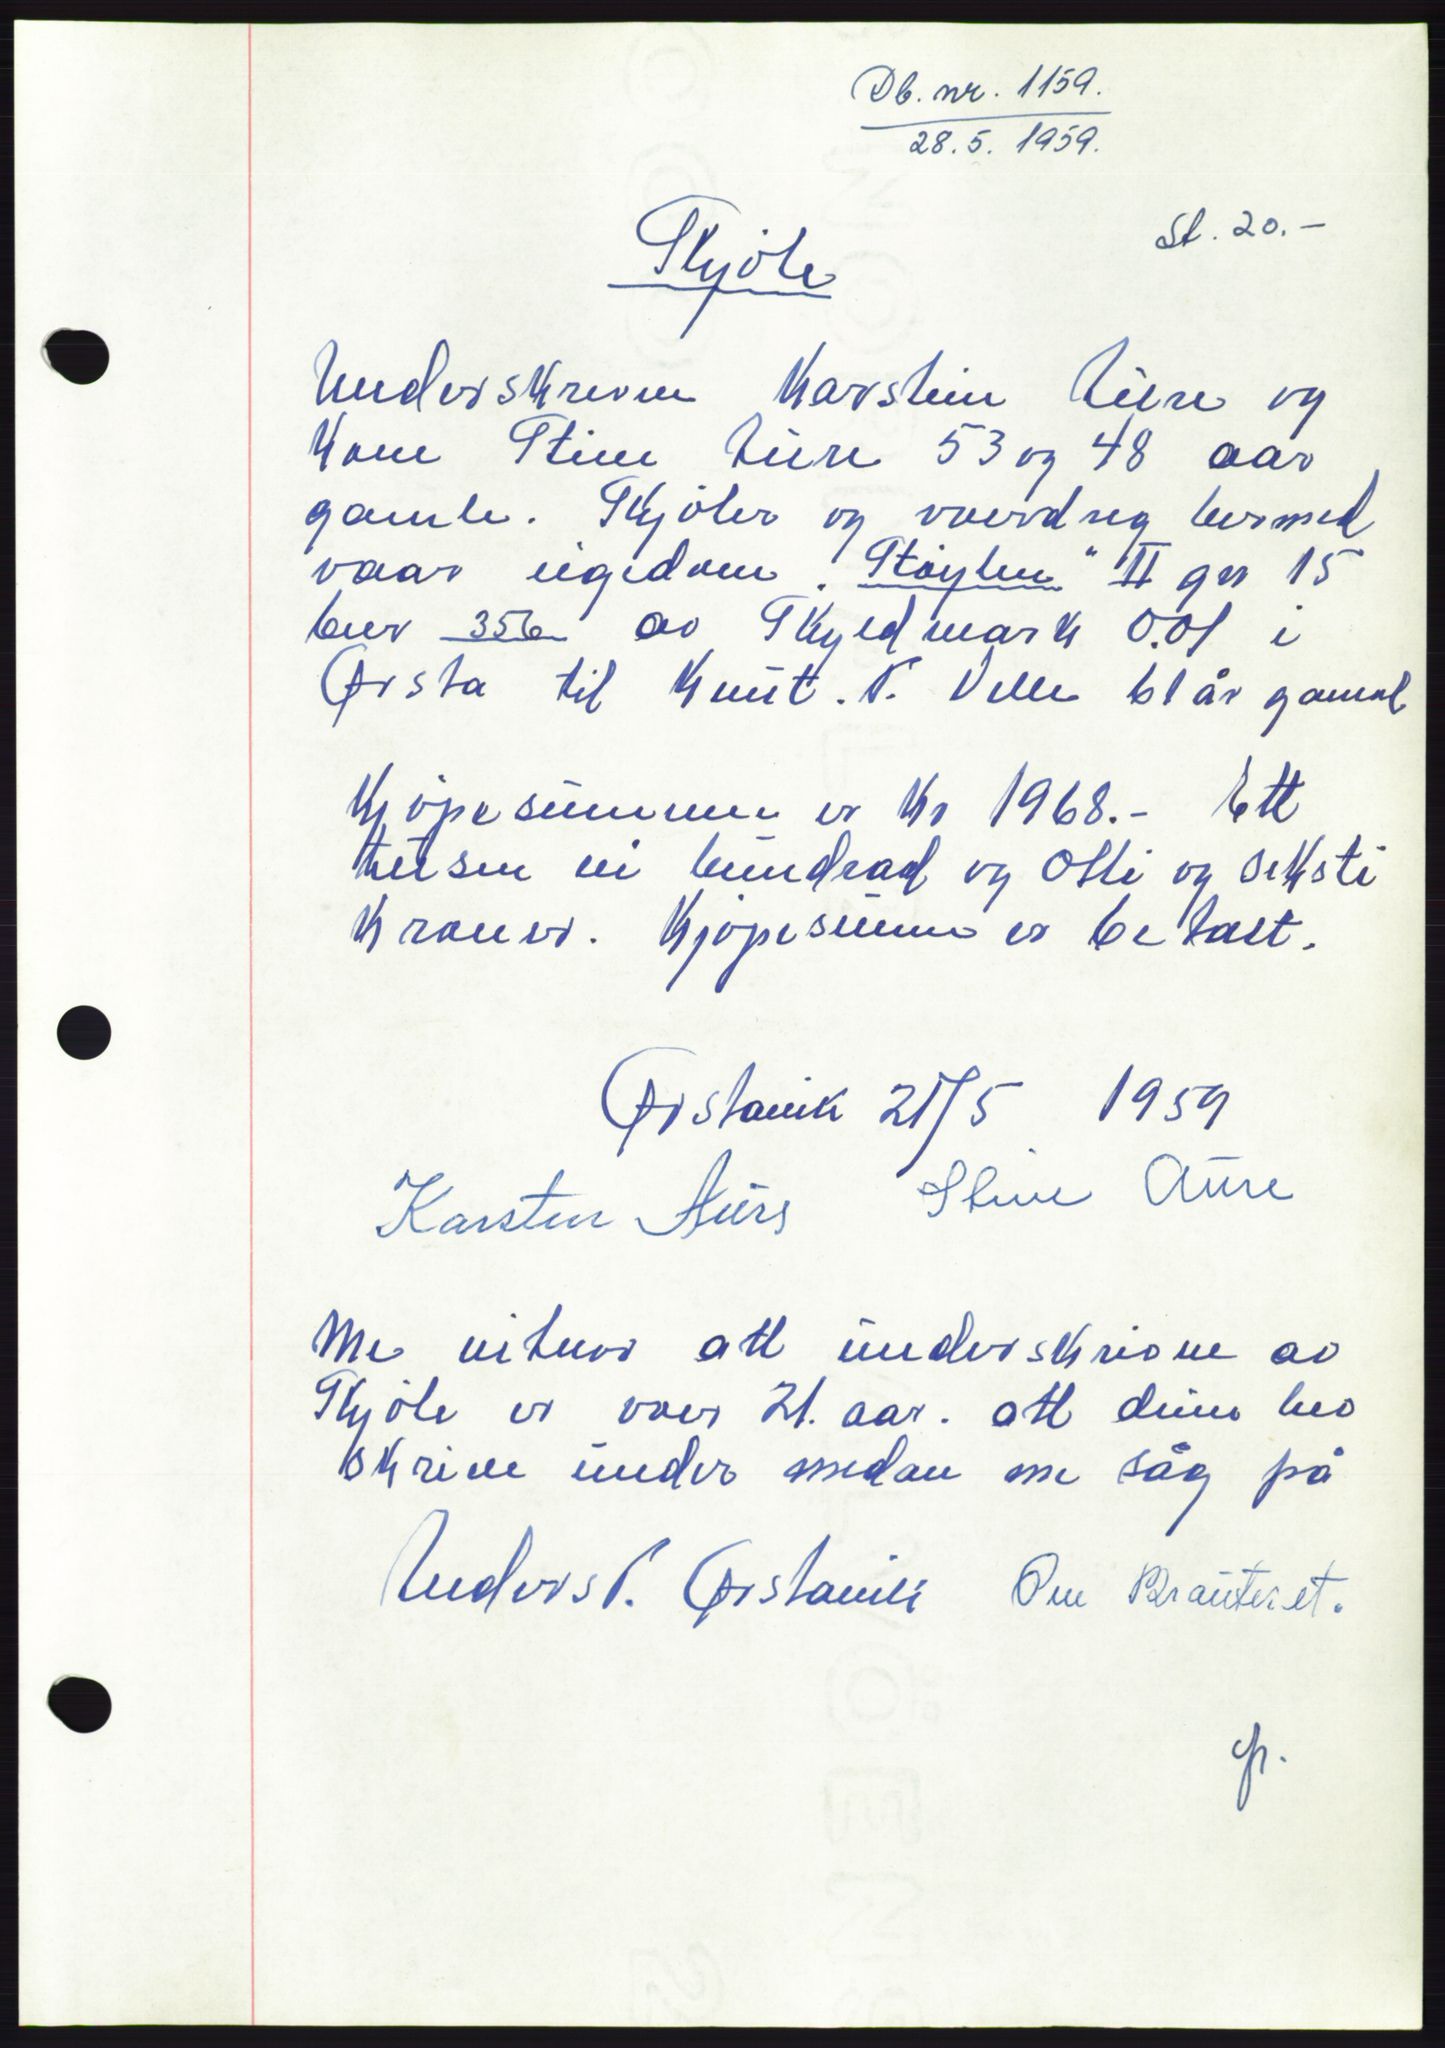 Db. nr. 1159.
28.5. 1959.
St. 20.-
Skjöte
Underskrevne Karstein Aure og
kone Stine Aure 53 og 48 aar
gamle. Skjöter og overdreg hermed
vaar eigedom "Støylen" II gnr 15
bnr 356 av Skyldmark 0.01 i
Ørsta til Knut. P. Velle 61 år gamal
Kjöpesummen er kr 1968.- Ett
tusen ni hundrad og Otti og seksti
kroner. Kjöpesumen er betalt.
Ørstavik 21/5 1959
Karsten Aure Stine Aure
Me vitner att underskrivne av
Skjöte er over 21. aar. att deim hev
skrive under medan me såg på
Anders P. Ørstavik Ove Brauteset.